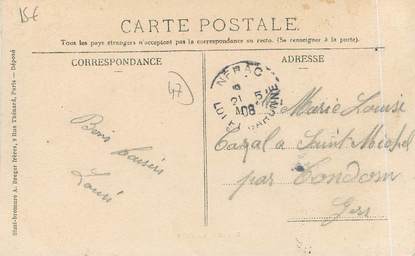 15€
CARTE POSTALE.
Tous les pays étrangers n'acceptent pas la correspondance au recto. (Se renseigner à la poste).
CORRESPONDANCE
ADRESSE
47
NERAC
21 5
08
LOT ET GARONNE
Bons baisers
Louis
Marie Louise
Cazal a Saint Michel
par Condom
Gers
Illust-bromure A. Breger frères, 9 Rue Thénard, Paris — Déposé